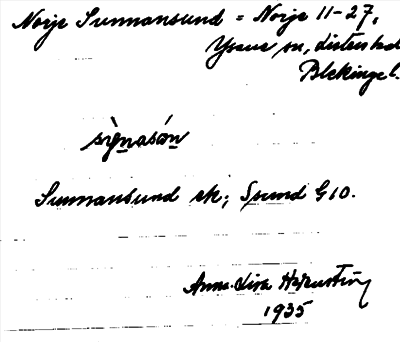 Norje Sunnansund = Norje 11-27,
Ysane sn, Listers hd
Blekinge l.
sỳnasón
Sunnansund ek; Ssund G10.
Anna-Lisa
1935